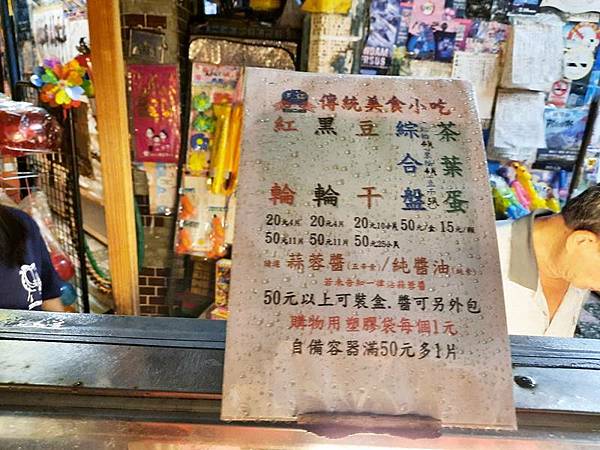 傳統美食小吃
紅輪
黑輪
豆干
綜合盤
茶葉蛋
20元4片 20元4片 20元10小片 50元/盒 15元/顆
50元11片 50元11片 50元25小片
蒜蓉醬(五辛素)/純醬油(純素)
若未告知一律沾蒜蓉醬
50元以上可裝盒.醬可另外包
購物用塑膠袋每個1元
自備容器滿50元多1片